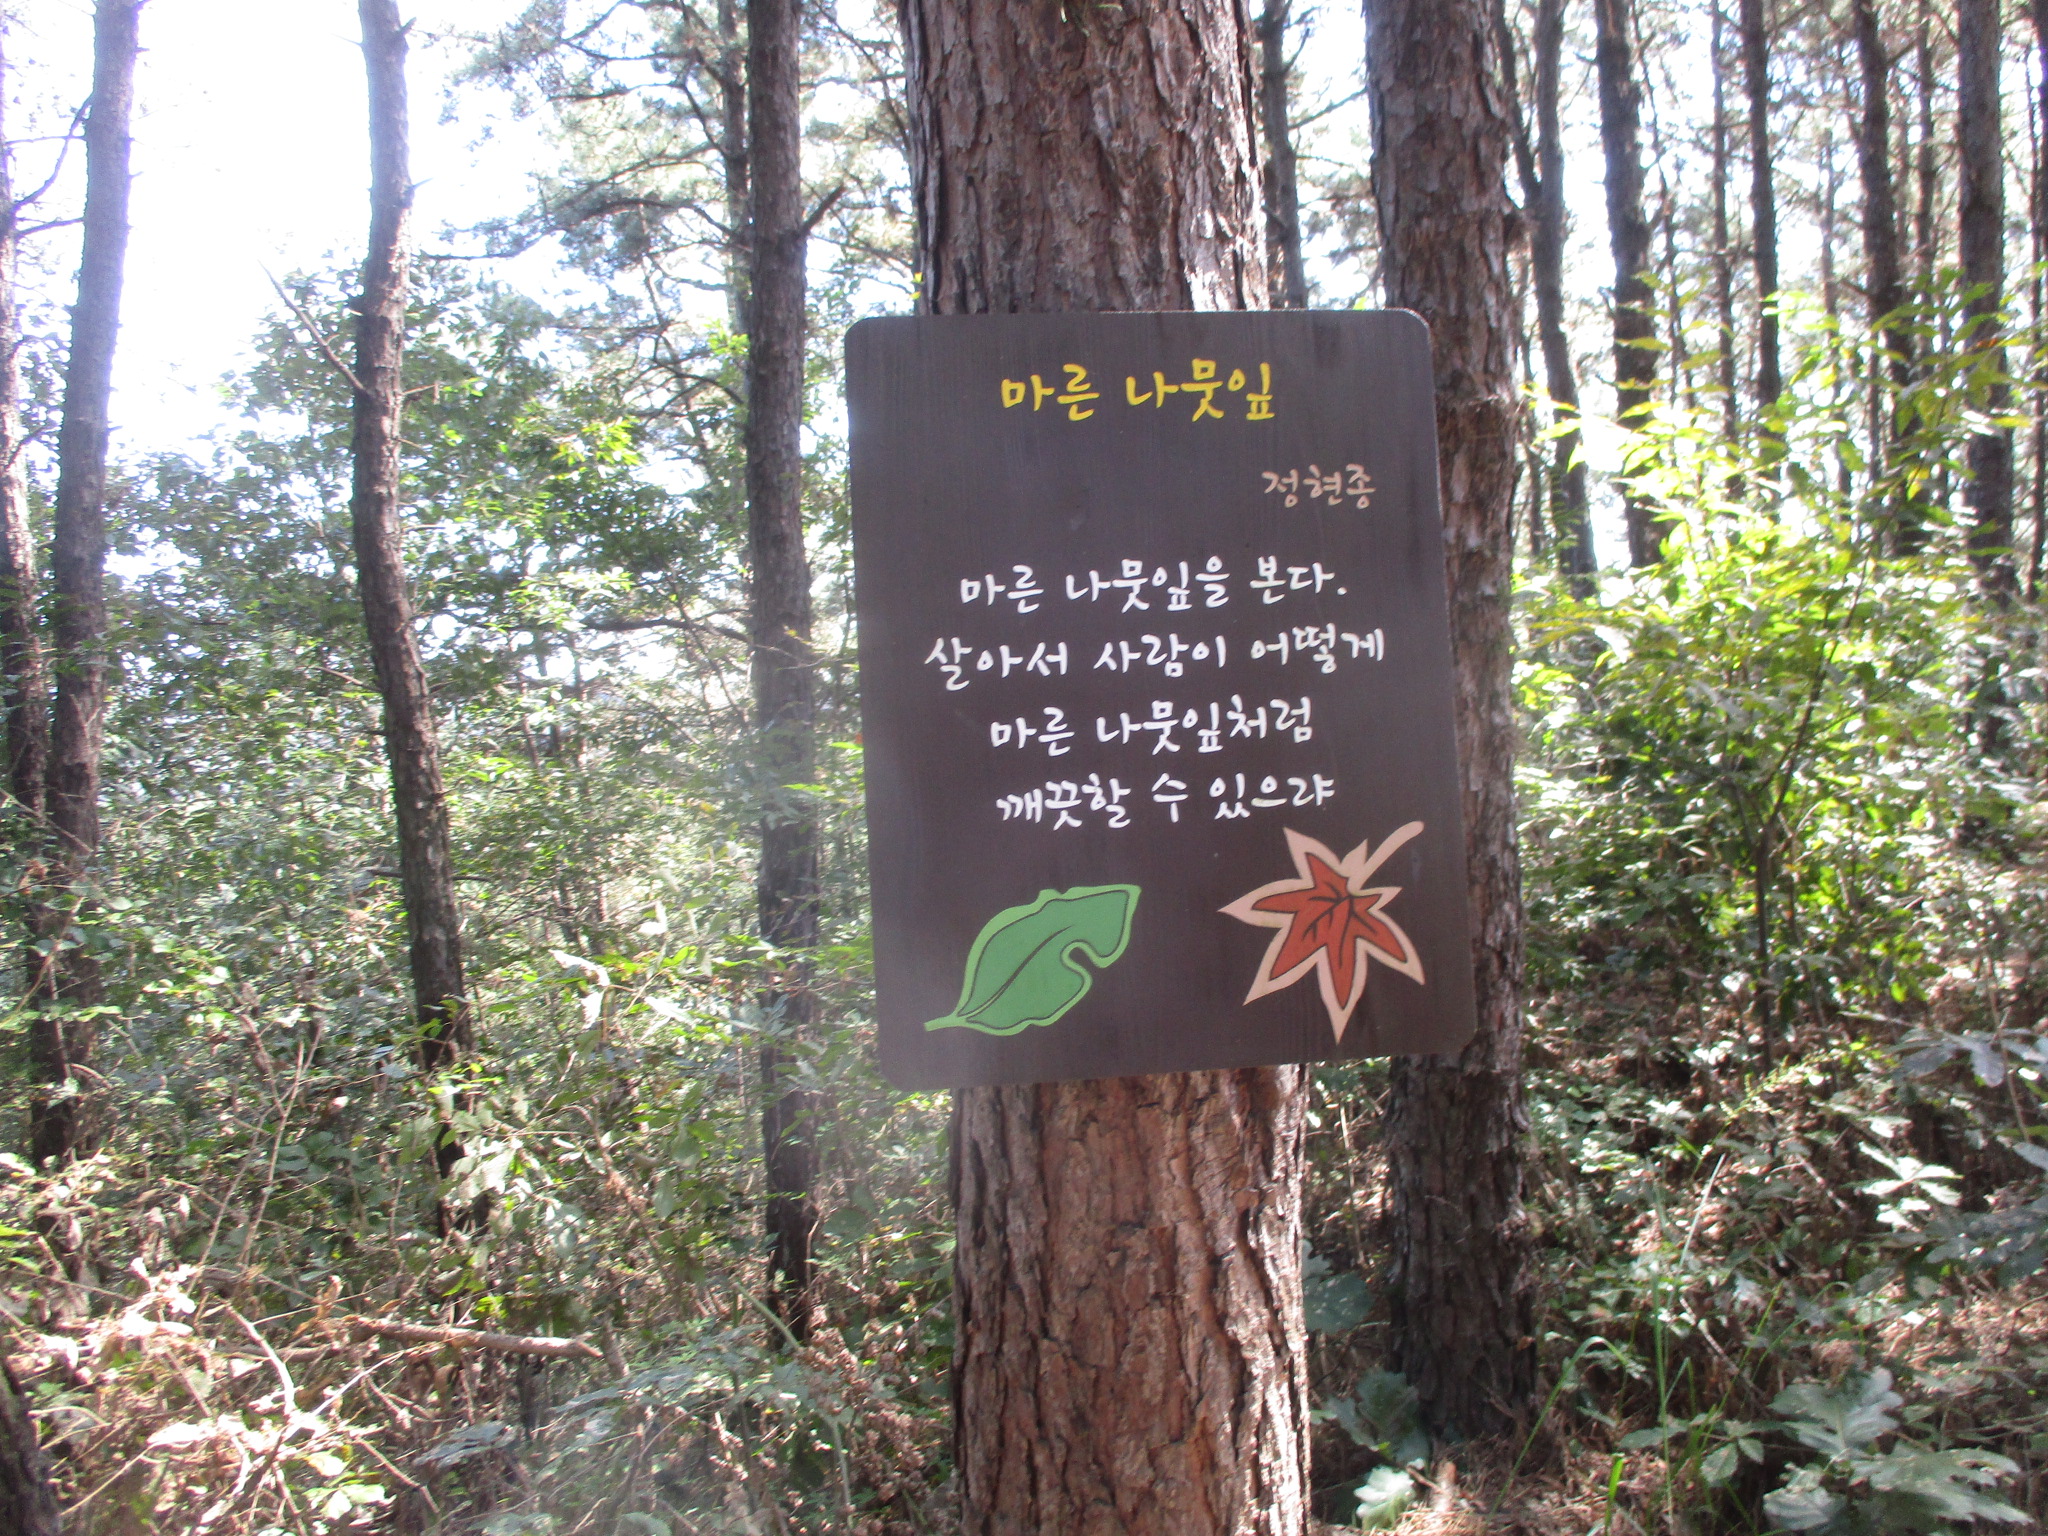 마른 나뭇잎
정현종
마른 나뭇잎을 본다.
살아서 사람이 어떻게
마른 나뭇잎처럼
깨끗할 수 있으랴